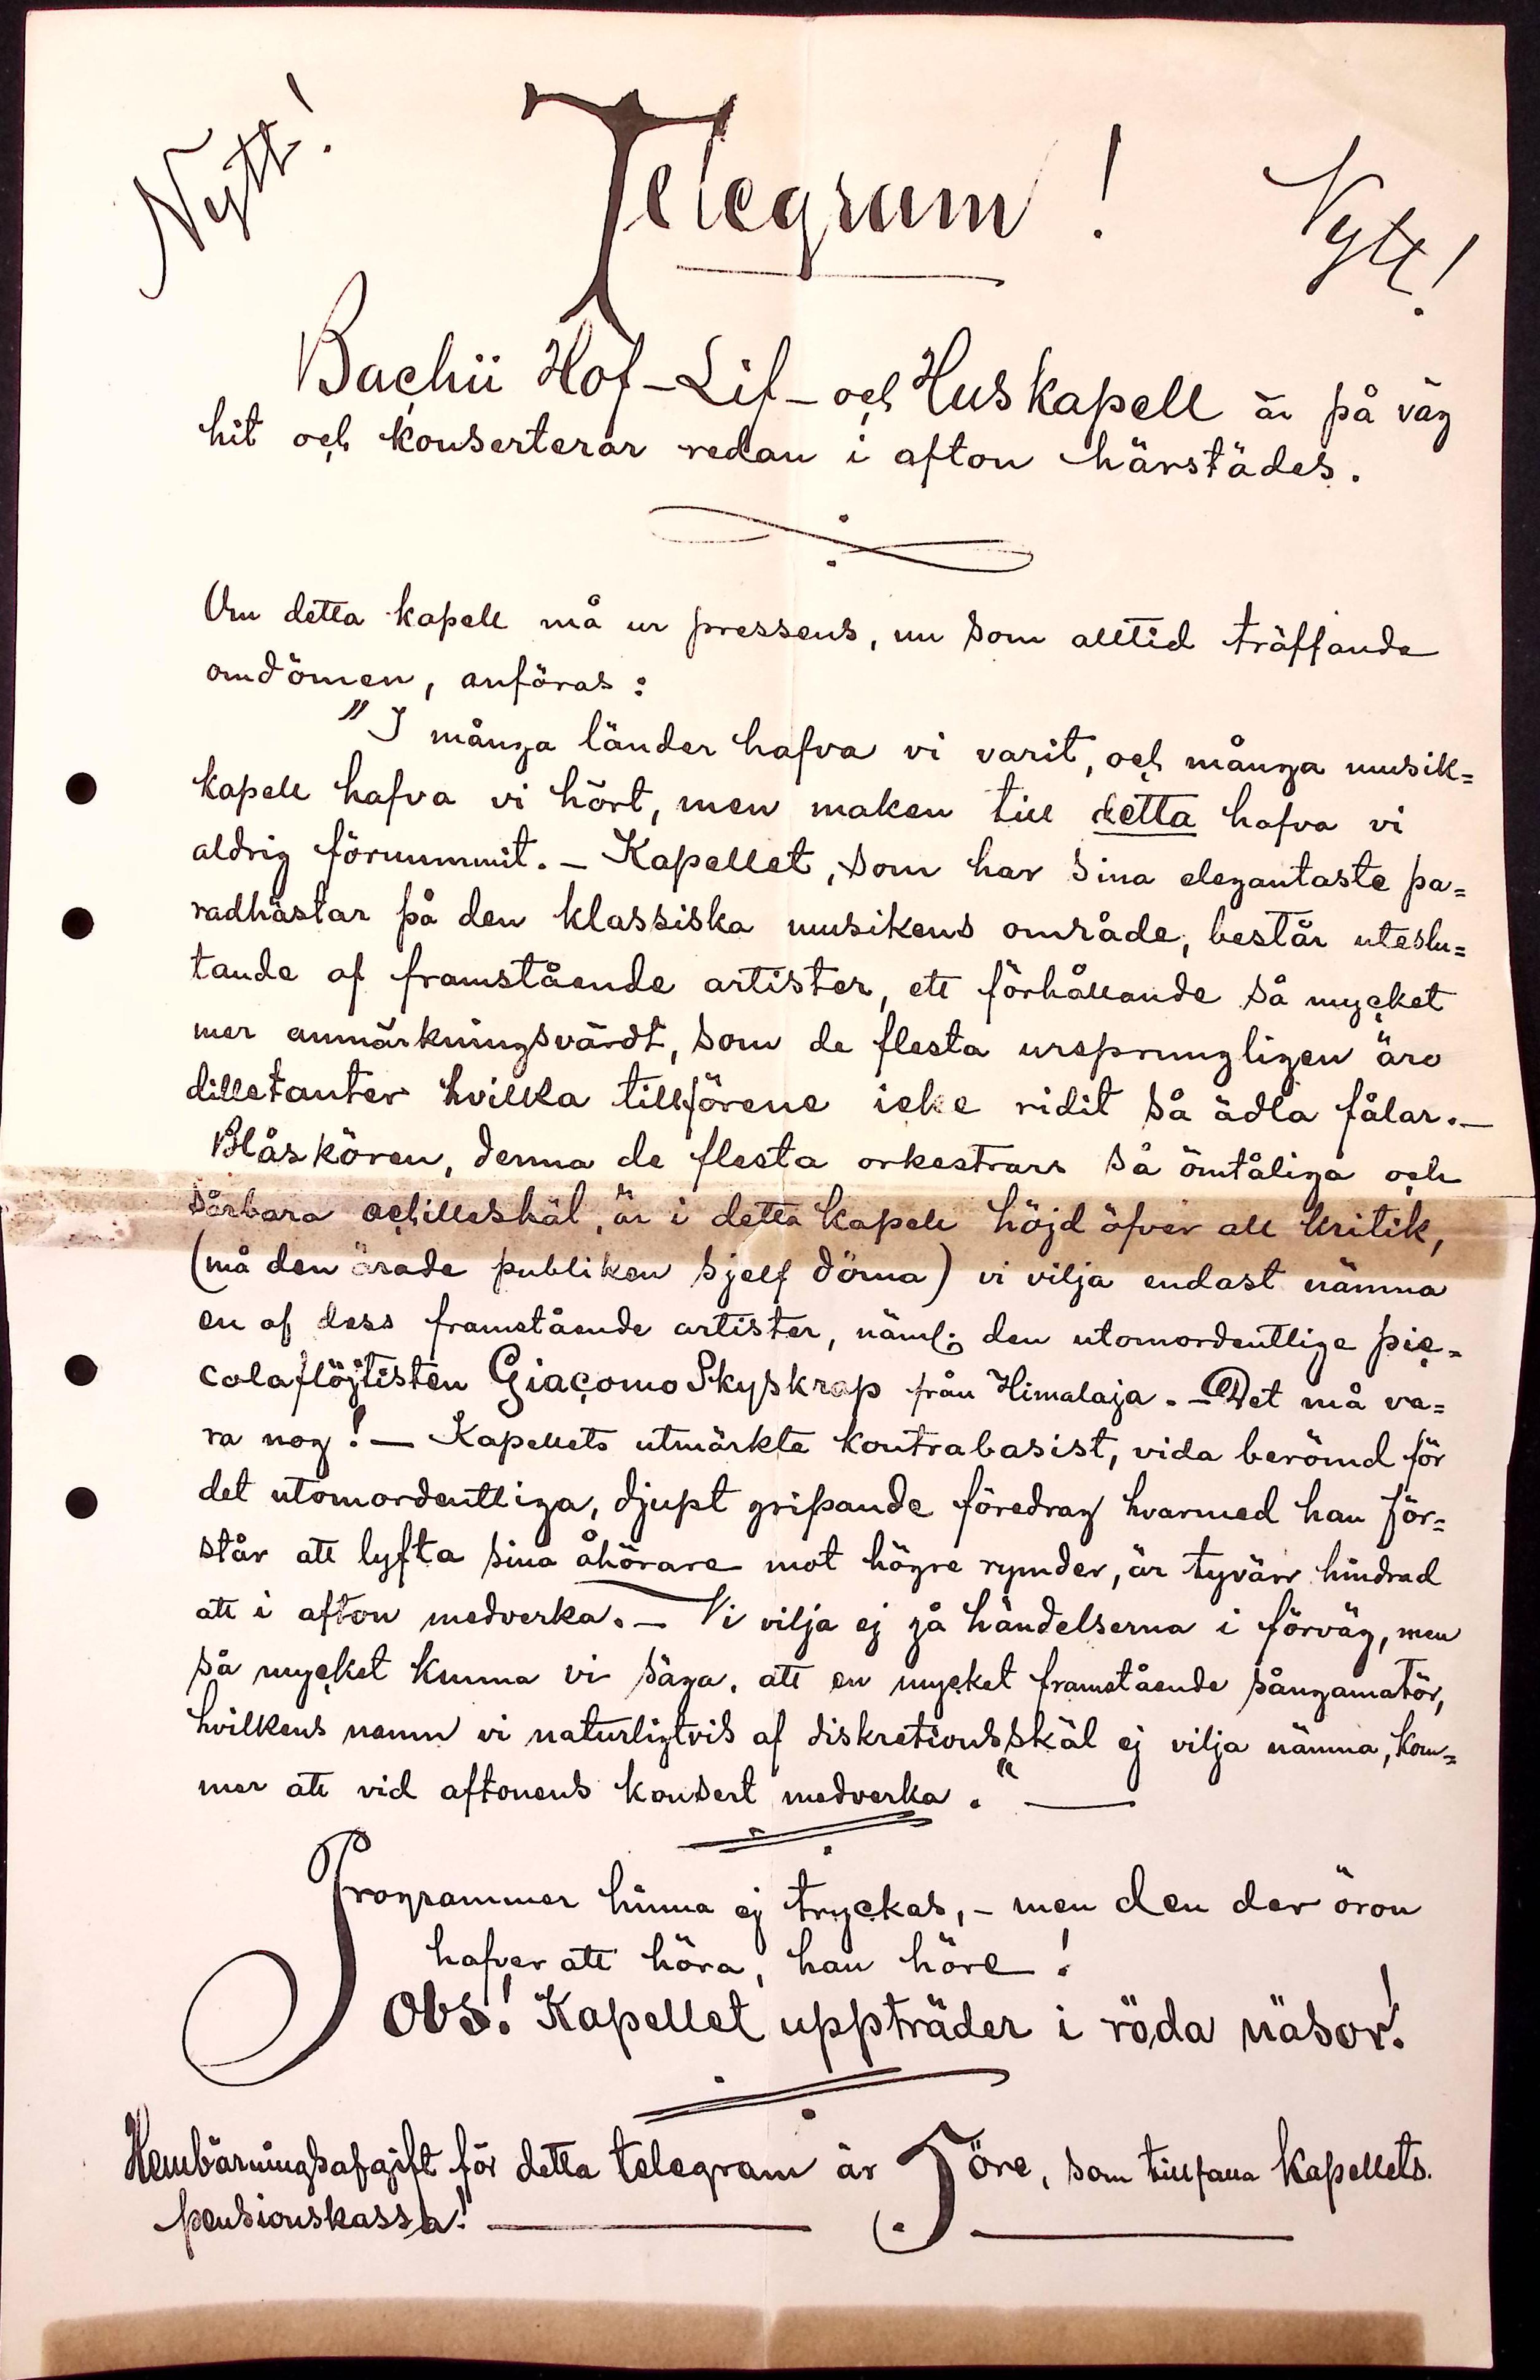 Nytt! Telegram! Nytt!
Bachii Hof-Lif- och Huskapell är på väg
hit och konserterar redan i afton härstädes.
Om detta kapell må ur pressens, nu som alltid träffande
omdömen, anföras:
"I många länder hafva vi varit, och många musik=
kapell hafva vi hört, men maken till detta hafva vi
aldrig förnummit. – Kapellet, som har sina elegantaste pa=
radhästar på den klassiska musikens område, består uteslu=
tande af framstående artister, ett förhållande så mycket
mer anmärkningsvärdt, som de flesta ursprungligen äro
dilletanter hvilka tillförene icke ridit så ädla fålar. –
Blåskören, denna de flesta orkestrars så ömtåliga och
sårbara achilleshäl, är i detta kapell höjd öfver all kritik,
(må den ärade publiken sjelf döma) vi vilja endast nämna
en af dess framstående artister, näml. den utomordentlige pic=
colaflöjtisten Giacomo Skyskrap från Himalaja. – Det må va=
ra nog! – Kapellets utmärkte kontrabasist, vida berömd för
det utomordentliga, djupt gripande föredrag hvarmed han för=
står att lyfta sina åhörare mot högre rymder, är tyvärr hindrad
att i afton medverka. – Vi vilja ej gå händelserna i förväg, men
så mycket kunna vi säga, att en mycket framstående sångamatör,
hvilkens namn vi naturligtvis af diskretionsskäl ej vilja nämna, kom=
mer att vid aftonens konsert medverka." —
Programmer hinna ej tryckas, – men den der öron
hafver att höra, han höre!
Obs! Kapellet uppträder i röda näsor!
Hembärningsafgift för detta telegram är 5 öre, som tillfalla kapellets
pensionskassa!